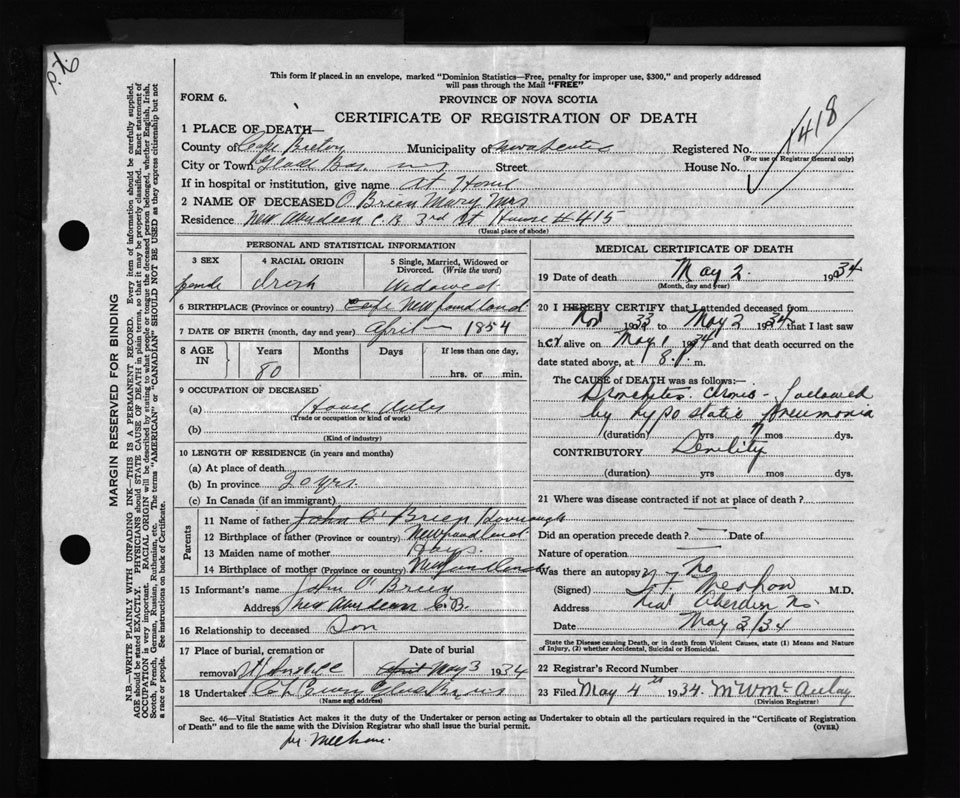 This form if placed in an envelope, marked "Dominion Statistics—Free, penalty for improper use, $300," and properly addressed
will pass through the Mail "FREE"
FORM 6.
PROVINCE OF NOVA SCOTIA
CERTIFICATE OF REGISTRATION OF DEATH
1418
1 PLACE OF DEATH—
County of Cape Breton Municipality of Registered No.
(For use of Registrar General only)
City or Town Glace Bay Street House No.
If in hospital or institution, give name At Home
2 NAME OF DECEASED O'Brien Mary Mrs
Residence New Aberdeen C.B 3rd St House # 415
(Usual place of abode)
PERSONAL AND STATISTICAL INFORMATION
3 SEX 4 RACIAL ORIGIN 5 Single, Married, Widowed or Divorced. (Write the word)
female Irish Widowed
6 BIRTHPLACE (Province or country) Newfoundland
7 DATE OF BIRTH (month, day and year) April — 1854
8 AGE IN Years Months Days If less than one day,
80 hrs. or min.
9 OCCUPATION OF DECEASED
(a) House
(Trade or occupation or kind of work)
(b)
(Kind of industry)
10 LENGTH OF RESIDENCE (in years and months)
(a) At place of death
(b) In province 20 yrs.
(c) In Canada (if an immigrant)
Parents
11 Name of father John O'Brien
12 Birthplace of father (Province or country) Newfoundland
13 Maiden name of mother
14 Birthplace of mother (Province or country) Newfoundland
15 Informant's name John O'Brien
Address New Aberdeen C.B.
16 Relationship to deceased Son
17 Place of burial, cremation or removal Date of burial
May 3 1934
18 Undertaker
(Name and address)
MEDICAL CERTIFICATE OF DEATH
19 Date of death May 2. 1934
(Month, day and year)
20 I HEREBY CERTIFY that I attended deceased from
Nov 1933 to May 2 1934 that I last saw
h er alive on May 1 1934 and that death occurred on the
date stated above, at 8 P. m.
The CAUSE of DEATH was as follows:—
Bronchitis chronic - followed
by hypostatic Pneumonia
(duration) yrs mos dys.
CONTRIBUTORY Senility
(duration) yrs mos dys.
21 Where was disease contracted if not at place of death?
Did an operation precede death? Date of
Nature of operation
Was there an autopsy? No
(Signed) M.D.
Address New Aberdeen N.S.
Date May 3/34
State the Disease causing Death, or in death from Violent Causes, state (1) Means and Nature
of Injury, (2) whether Accidental, Suicidal or Homicidal.
22 Registrar's Record Number
23 Filed May 4th 1934. McAulay
(Division Registrar)
Sec. 46—Vital Statistics Act makes it the duty of the Undertaker or person acting as Undertaker to obtain all the particulars required in the "Certificate of Registration
of Death" and to file the same with the Division Registrar who shall issue the burial permit.
(OVER)
MARGIN RESERVED FOR BINDING
N.B.—WRITE PLAINLY WITH UNFADING INK—THIS IS A PERMANENT RECORD. Every item of information should be carefully supplied.
AGE should be stated EXACTLY. PHYSICIANS should STATE CAUSE OF DEATH in plain terms, so that it may be properly classified. Exact statement of
OCCUPATION is very important. RACIAL ORIGIN will be described by stating to what people or tongue the deceased person belonged, whether English, Irish,
Scotch, French, German, Russian, Ruthenian, etc. The terms "AMERICAN" or "CANADIAN" SHOULD NOT BE USED as they express citizenship but not
a race or people. See instructions on back of Certificate.